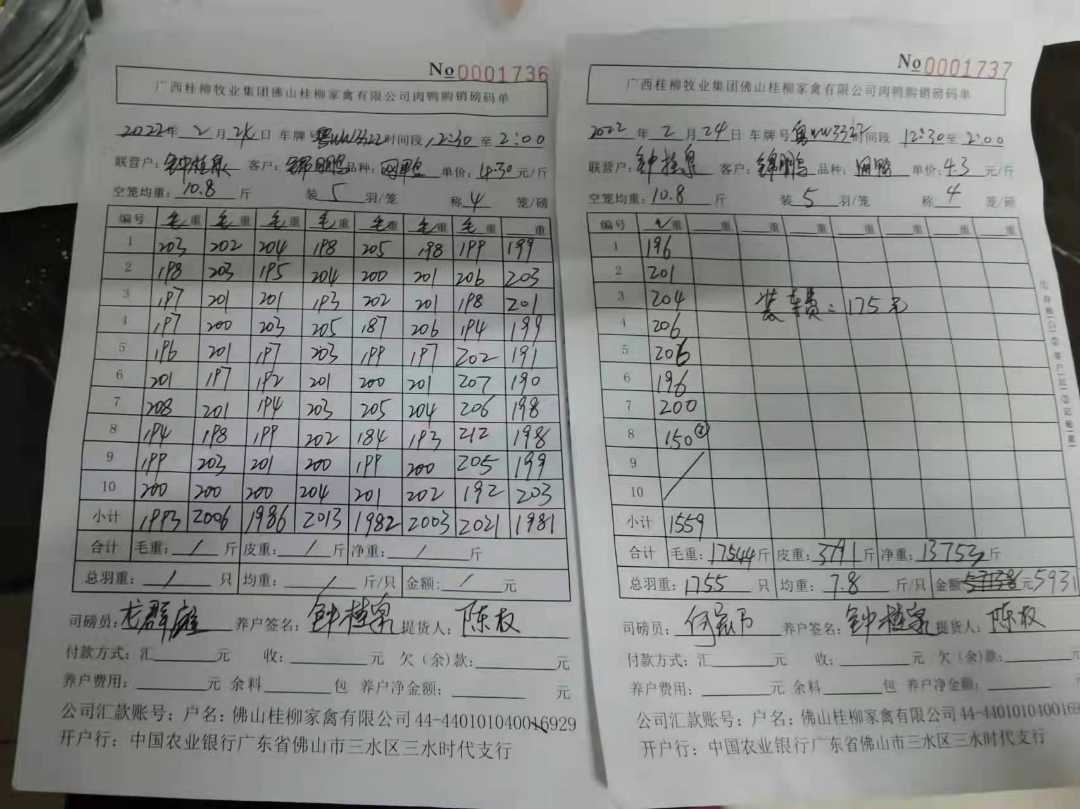 No0001736
广西桂柳牧业集团佛山桂柳家禽有限公司肉鸭购销磅码单
2022年 2 月 24 日 车牌号 粤 时间段 12:30 至 2:00
联营户: 钟植泉 客户: 锦鹏 品种: 单价: 4.30 元/斤
空笼均重: 10.8 斤 装 5 羽/笼 称 4 笼/磅
编号 毛重 毛重 毛重 毛重 毛重 毛重 毛重 重
1 203 202 204 198 205 198 199 199
2 198 203 195 204 200 201 206 203
3 197 201 201 193 202 201 198 201
4 197 200 203 205 187 206 194 199
5 196 201 197 203 199 197 202 191
6 201 197 192 201 200 201 207 190
7 208 201 194 203 205 204 206 198
8 194 198 199 202 184 193 212 198
9 199 203 201 200 199 200 205 199
10 200 200 200 204 201 202 192 203
小计 1993 2006 1986 2013 1982 2003 2021 1981
合计 毛重: / 斤 皮重: / 斤 净重: / 斤
总羽重: / 只 均重: / 斤/只 金额: / 元
司磅员: 养户签名: 钟植泉 提货人: 陈权
付款方式: 汇 元 收: 元 欠(余)款: 元
养户费用: 元 余料 包 养户净金额: 元
公司汇款账号: 户名: 佛山桂柳家禽有限公司 44-440101040016929
开户行: 中国农业银行广东省佛山市三水区三水时代支行
No0001737
广西桂柳牧业集团佛山桂柳家禽有限公司肉鸭购销磅码单
2022 年 2 月 24 日 车牌号 粤 时间段 12:30 至 2:00
联营户: 钟植泉 客户: 锦鹏 品种: 单价: 4.3 元/斤
空笼均重: 10.8 斤 装 5 羽/笼 称 4 笼/磅
编号 毛重 重 重 重 重 重 重 重
1 196
2 201
3 204 装车费: 175元
4 206
5 206
6 196
7 200
8 150
9
10
小计 1559
合计 毛重: 17544 斤 皮重: 3791 斤 净重: 13753 斤
总羽重: 1755 只 均重: 7.8 斤/只 金额 元 5931
司磅员: 养户签名: 钟植泉 提货人: 陈权
付款方式: 汇 元 收: 元 欠(余)款: 元
养户费用: 元 余料 包 养户净金额:
公司汇款账号: 户名: 佛山桂柳家禽有限公司 44-440101040016929
开户行: 中国农业银行广东省佛山市三水区三水时代支行